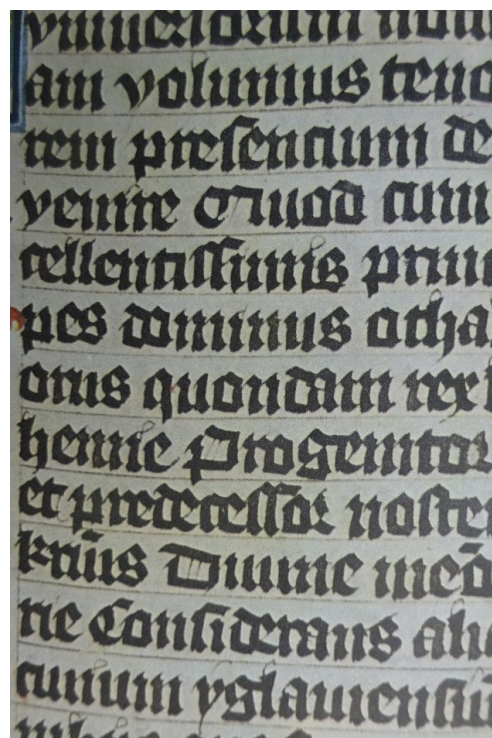 vniuersorum
am volumus teno
rem presencium de
venire Quod cum
cellentissimus prin
pes dominus otha
orus quondam rex
hemie Progenitor
et predecessor noster
Diuine meō
rie Considerans
ciuium yglauiensiū